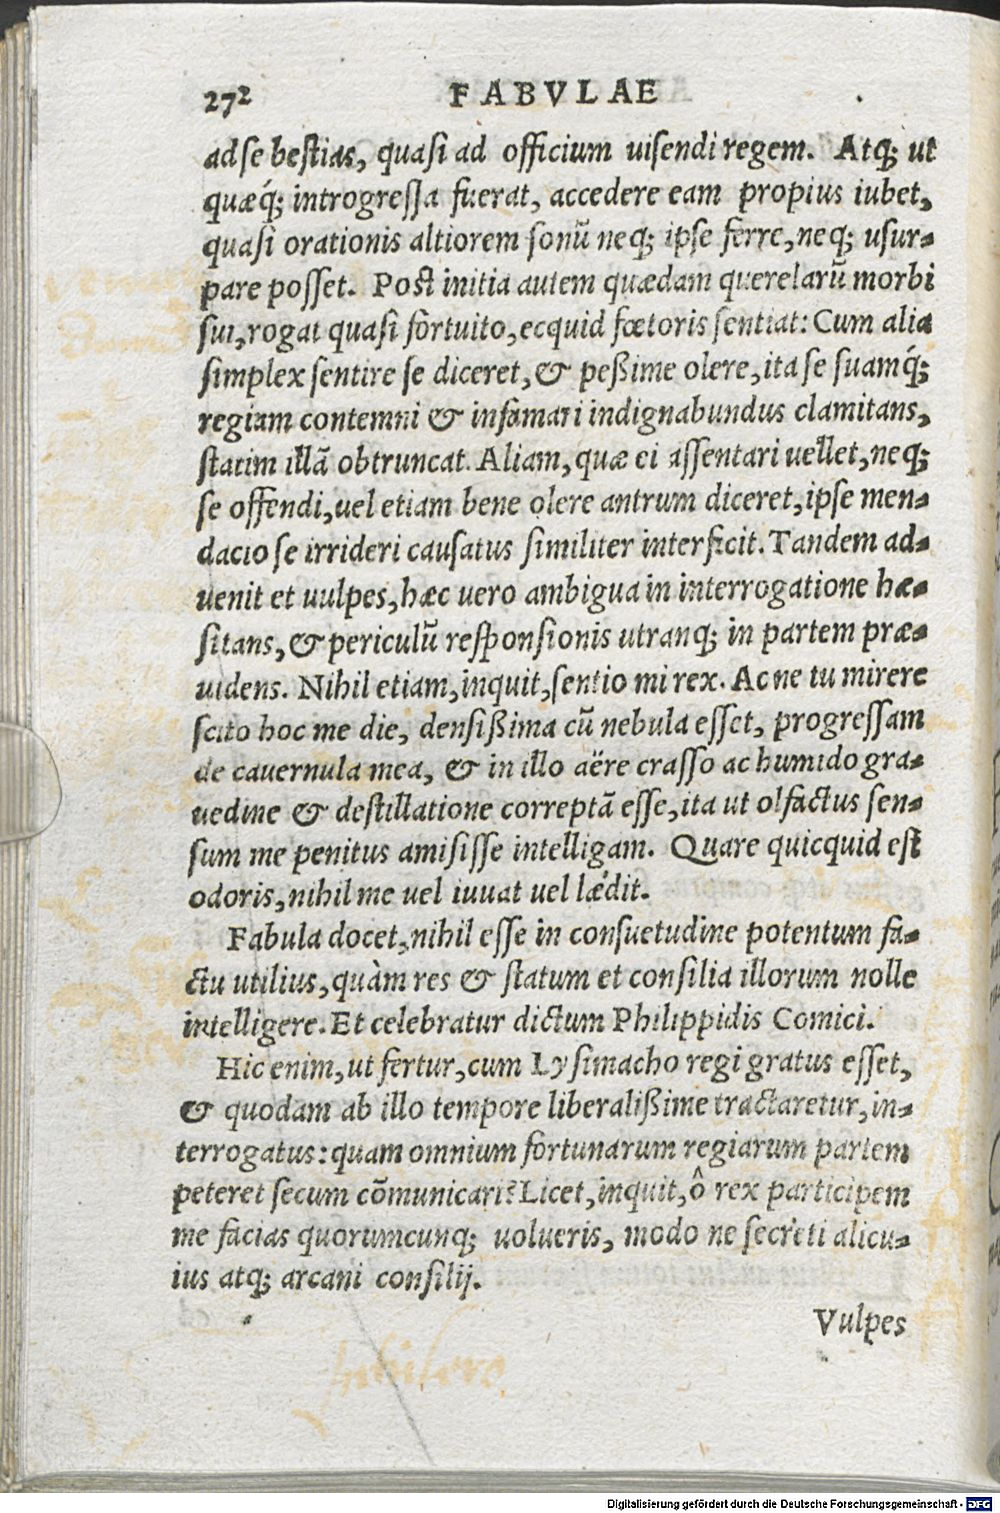 272 FABVLAE
ad se bestias, quasi ad officium uisendi regem. Atq; ut
quæq́; introgressa fuerat, accedere eam propius iubet,
quasi orationis altiorem sonũ neq; ipse ferre, neq; usur-
pare posset. Post initia autem quædam querelarũ morbi
sui, rogat quasi fortuito, ecquid fœtoris sentiat: Cum alia
simplex sentire se diceret, & peßime olere, ita se suamq́;
regiam contemni & infamari indignabundus clamitans,
statim illã obtruncat. Aliam, quæ ei assentari uellet, neq;
se offendi, uel etiam bene olere antrum diceret, ipse men-
dacio se irrideri causatus similiter interficit. Tandem ad-
uenit et uulpes, hæc uero ambigua in interrogatione hæ-
sitans, & periculũ responsionis utranq; in partem præ-
uidens. Nihil etiam, inquit, sentio mi rex. Ac ne tu mirere
scito hoc me die, densißima cũ nebula esset, progressam
de cauernula mea, & in illo aëre crasso ac humido gra-
uedine & destillatione correptã esse, ita ut olfactus sen-
sum me penitus amisisse intelligam. Quare quicquid est
odoris, nihil me uel iuuat uel lædit.
Fabula docet, nihil esse in consuetudine potentum fa-
ctu utilius, quàm res & statum et consilia illorum nolle
intelligere. Et celebratur dictum Philippidis Comici.
Hic enim, ut fertur, cum Lysimacho regi gratus esset,
& quodam ab illo tempore liberalißime tractaretur, in-
terrogatus: quam omnium fortunarum regiarum partem
peteret secum cõmunicari? Licet, inquit, ô rex participem
me facias quorumcunq; uolueris, modo ne secreti alicu-
ius atq; arcani consilij.
Vulpes
Digitalisierung gefördert durch die Deutsche Forschungsgemeinschaft - DFG